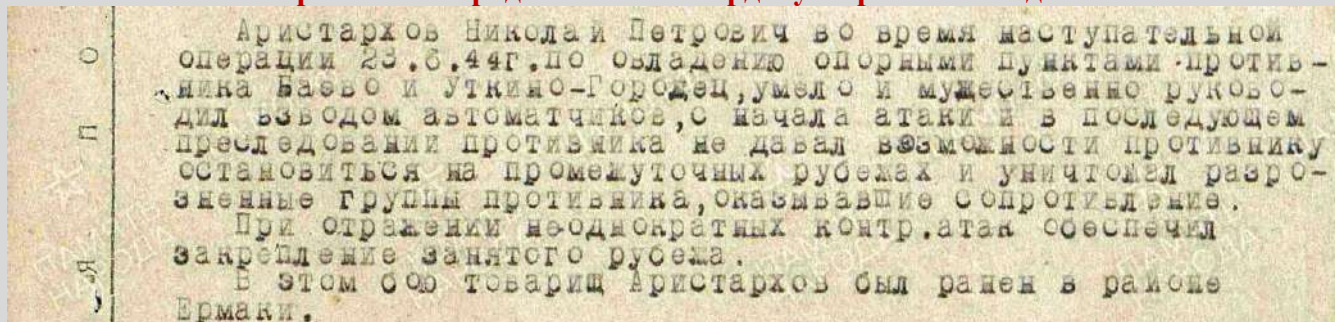 Аристархов Николай Петрович во время наступательной
операции 23.6.44г.по овладению опорными пунктами против-
ника Баево и Уткино-Городец,умело и мужественно руково-
дил взводом автоматчиков,с начала атаки и в последующем
преследовании противника не давал возможности противнику
остановиться на промежуточных рубежах и уничтожал разро-
зненные группы противника,оказывавшие сопротивление.
При отражении неоднократных контр.атак обеспечил
закрепление занятого рубежа.
В этом бою товарищ Аристархов был ранен в районе
Ермаки.